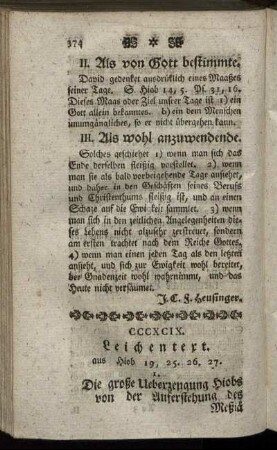 374
II. Als von Gott bestimmte.
David gedenket ausdrüklich eines Maaßes
seiner Tage. S. Hiob 14, 5. Ps. 31, 16.
Dieses Maas oder Ziel unsrer Tage ist 1) ein
Gott allein bekanntes. b) ein dem Menschen
unumgänglicher, so er nicht übergehen kann.
III. Als wohl anzuwendende.
Solches geschiehet 1) wenn man sich das
Ende derselben fleißig vorstellet. 2) wenn
man sie als bald vorbeigehende Tage ansiehet,
und daher in den Geschäften seines Berufs
und Christenthums fleißig ist, und an einen
Schaz auf die Ewigkeit sammlet. 3) wenn
man sich in den zeitlichen Angelegenheiten die-
ses Lebens nicht alzusehr zerstreuet, sondern
am ersten trachtet nach dem Reiche Gottes.
4) wenn man einen jeden Tag als den letzten
ansieht, und sich zur Ewigkeit wohl bereitet,
der Gnadenzeit wohl wahrnimmt, und das
Heute nicht versäumet.
J. C. F. Heusinger.
CCCXCIX.
Leichentext.
aus Hiob 19, 25. 26. 27.
1.
Die große Ueberzeugung Hiobs
von der Auferstehung des
Meßiä